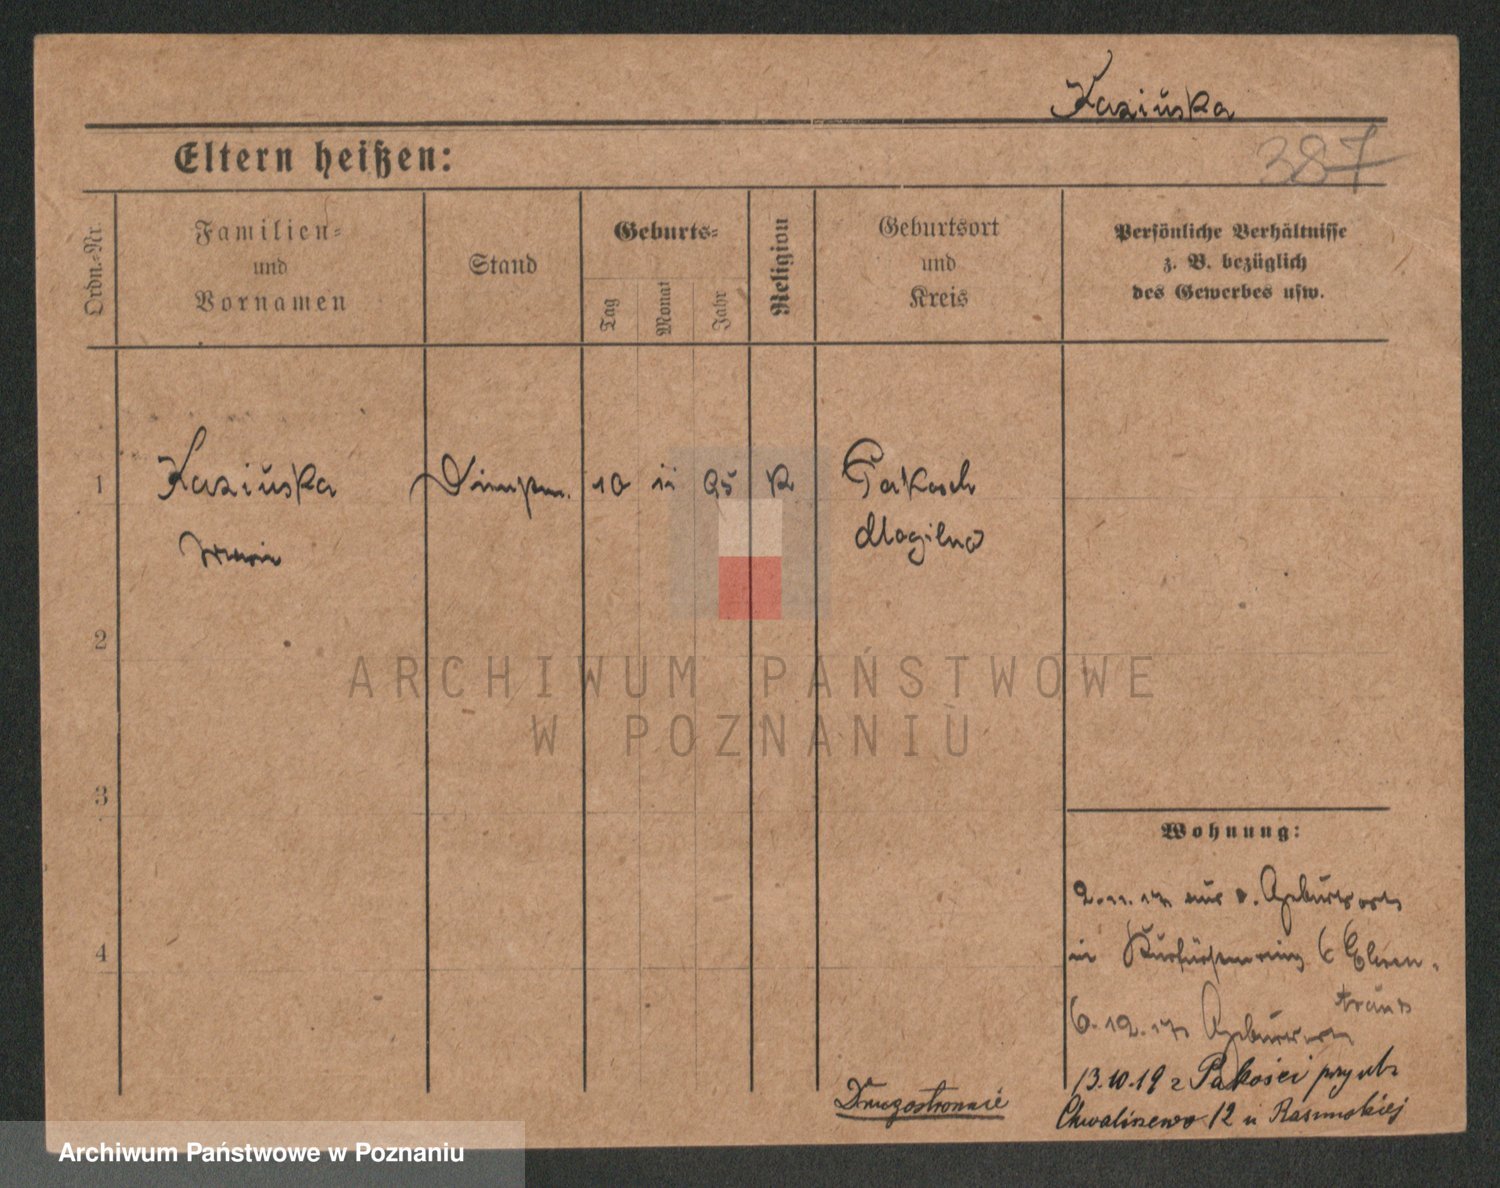 Kaziuska
387
Eltern heißen:
Ordn.-Nr.
Familien-
und
Vornamen
Stand
Geburts-
Tag
Monat
Jahr
Religion
Geburtsort
und
Kreis
Persönliche Verhältnisse
z. B. bezüglich
des Gewerbes usw.
1 Kaziuska 10 11 95 K Pakosch
Marie Mogilno
2
3
4
Wohnung:
2.11.17 aus d. Geburtsort
in Kurfürstenring 6
6.12.17 Geburtsort
13.10.19 z Pakości przyub
Chwaliszewo 12 u
Drugostronnie
ARCHIWUM PAŃSTWOWE
W POZNANIU
Archiwum Państwowe w Poznaniu